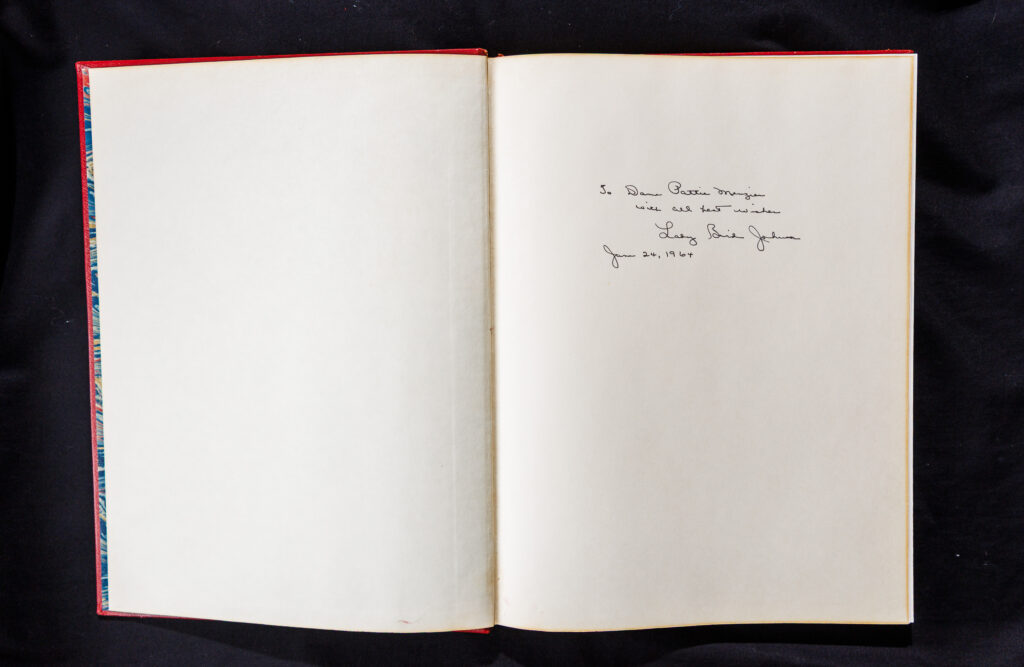 To Dame Pattie Menzies
with all best wishes
Lady Bird Johnson
June 24, 1964